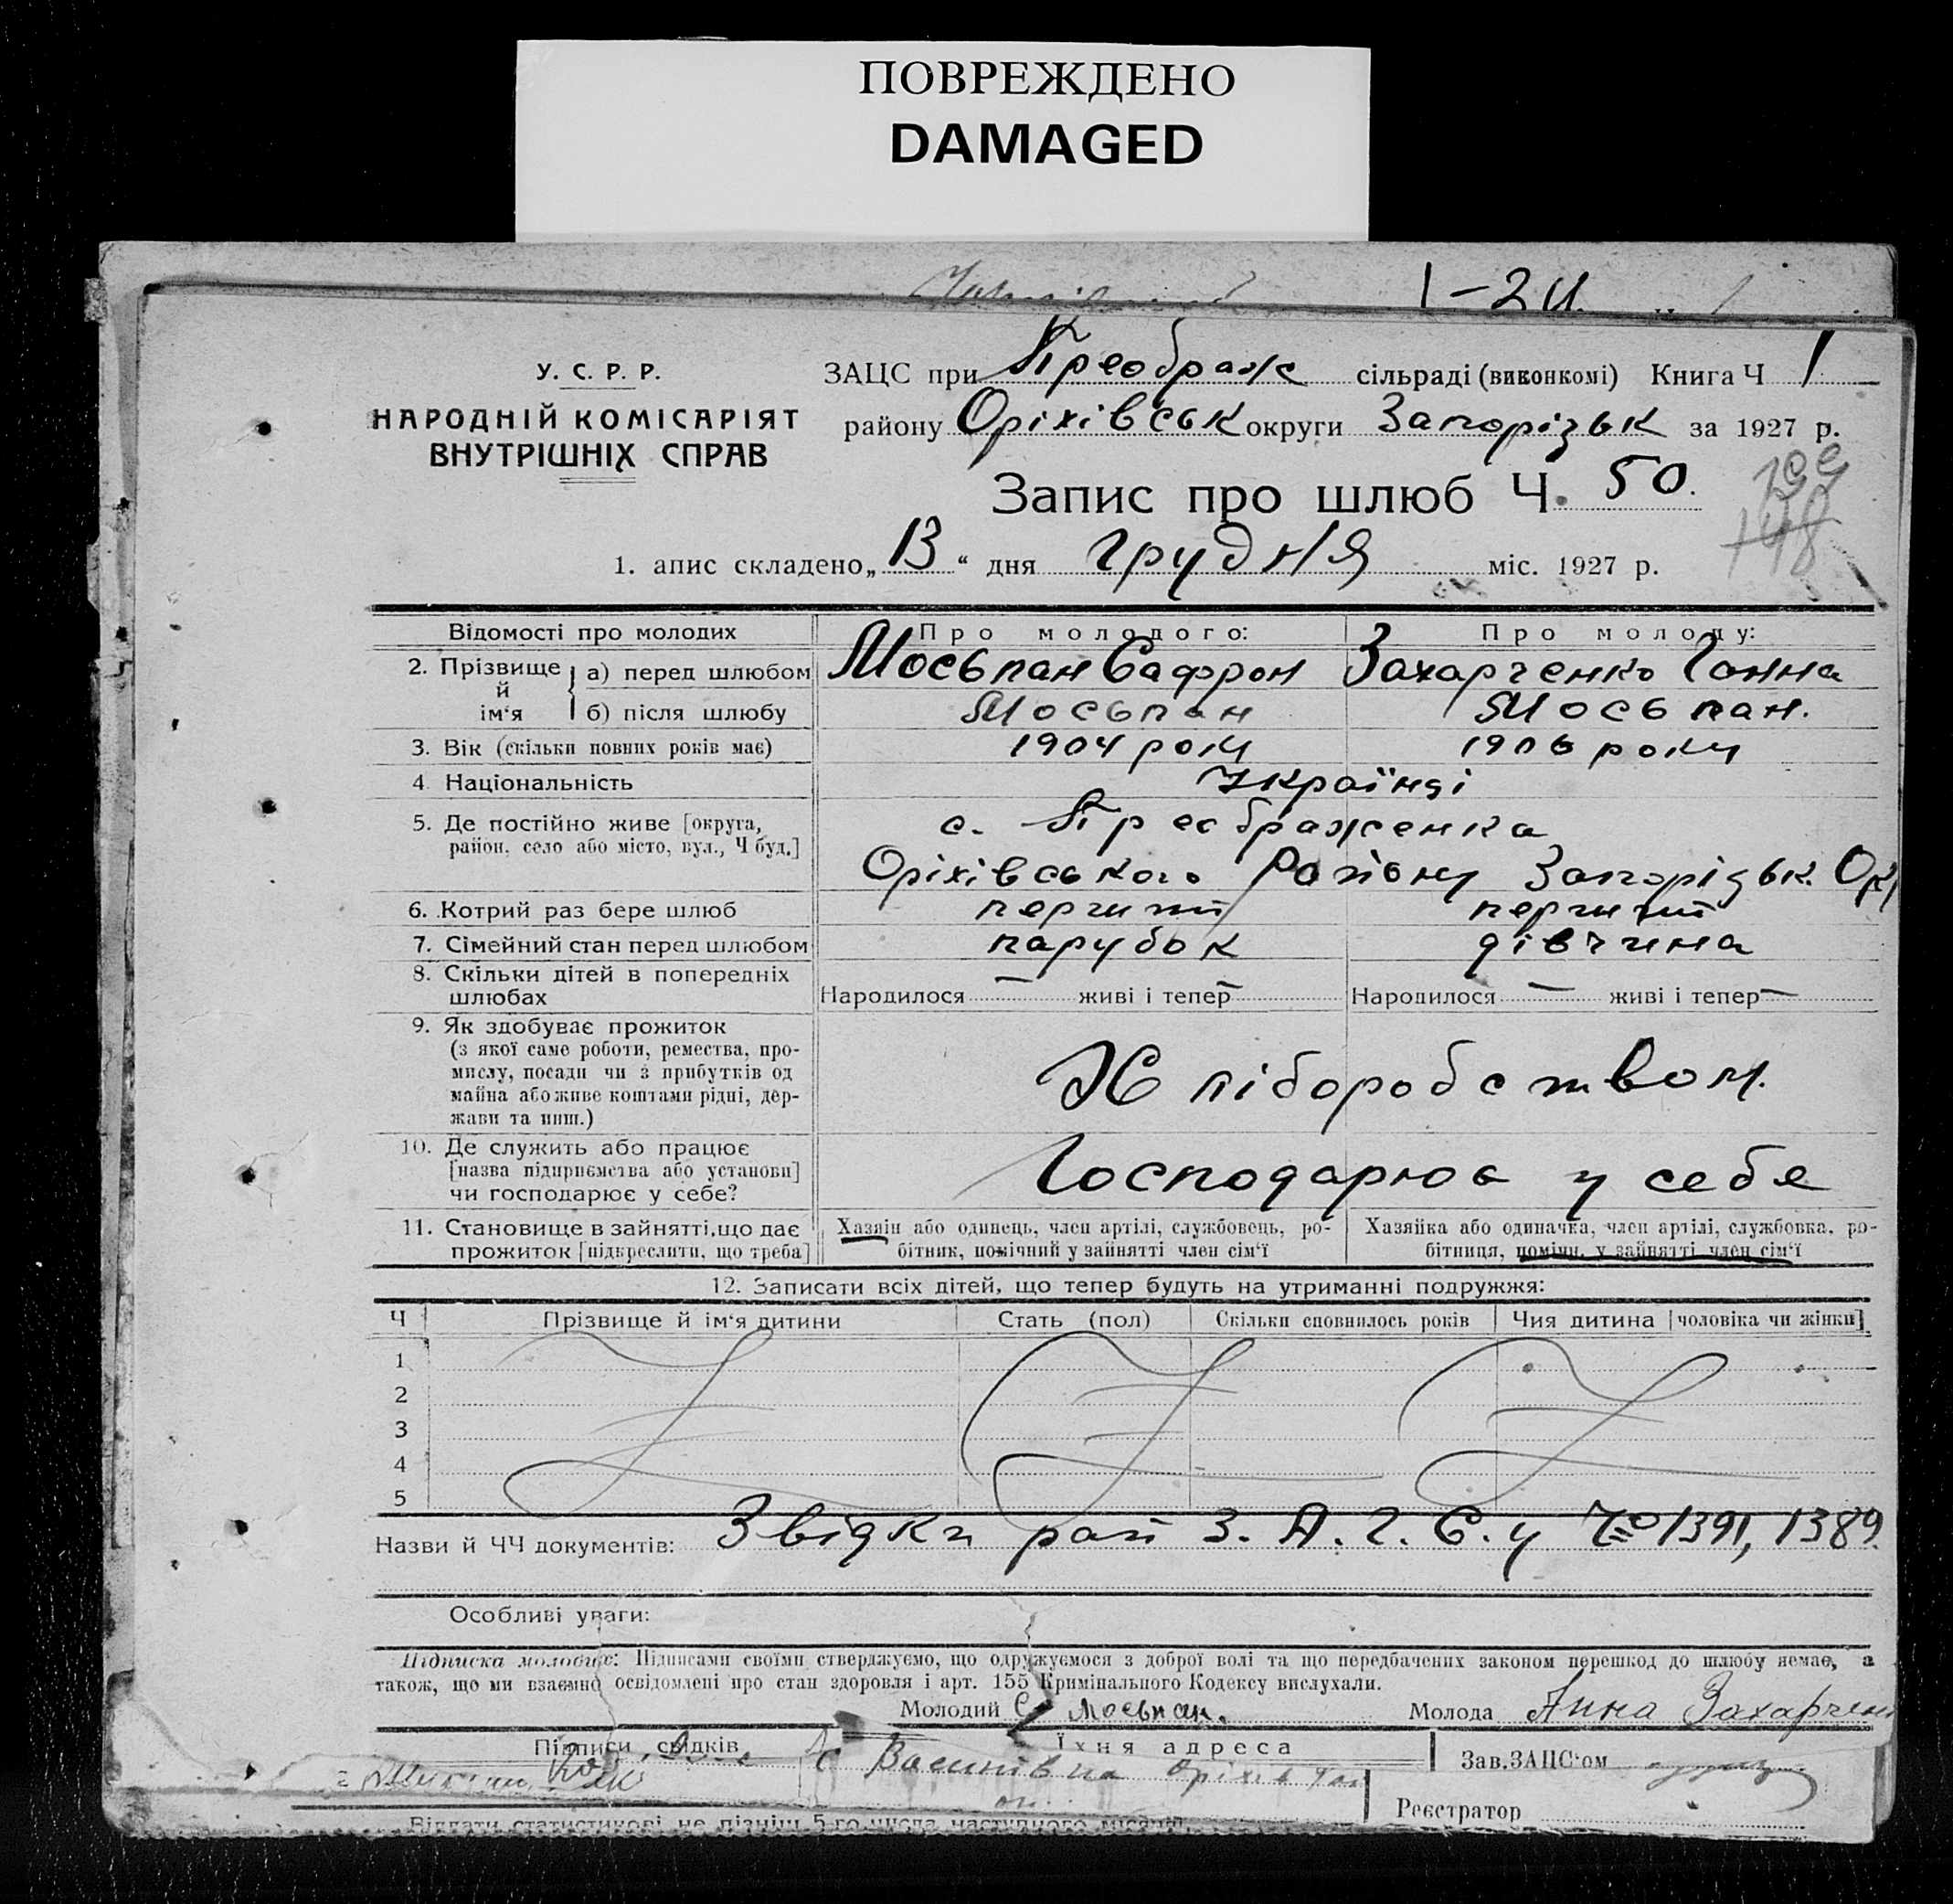 ПОВРЕЖДЕНО
DAMAGED
1-24.
У. С. Р. Р.
НАРОДНІЙ КОМІСАРІЯТ
ВНУТРІШНІХ СПРАВ
ЗАЦС при Преображ сільраді (виконкомі) Книга Ч 1
району Оріхівськ округи Запорізьк за 1927 р.
Запис про шлюб Ч. 50.
148
1. апис складено „13“ дня грудня міс. 1927 р.
Відомості про молодих Про молодого: Про молоду:
2. Прізвище й ім‘я а) перед шлюбом Мосьпан Сафрон Захарченко Ганна
б) після шлюбу Мосьпан Мосьпан.
3. Вік (скільки повних років має) 1904 року 1906 року
4 Національність Українці
5. Де постійно живе [округа, с. Преображенка
район, село або місто, вул., Ч буд.] Оріхівського Району Запорізьк. Окр
6. Котрий раз бере шлюб перший перший
7. Сімейний стан перед шлюбом парубок дівчина
8. Скільки дітей в попередніх
шлюбах Народилося — живі і тепер — Народилося — живі і тепер —
9. Як здобуває прожиток
(з якої саме роботи, ремества, про-
мислу, посади чи з прибутків од
майна або живе коштами рідні, дер-
жави та инш.) Хліборобством.
10. Де служить або працює
[назва підприємства або установи]
чи господарює у себе? Господарює у себе
11. Становище в зайнятті, що дає Хазяїн або одинець, член артілі, службовець, ро- Хазяйка або одиначка, член артілі, службовка, ро-
прожиток [підкреслити, що треба] бітник, помічний у зайнятті член сім‘ї бітниця, помічн. у зайнятті член сім‘ї
12. Записати всіх дітей, що тепер будуть на утриманні подружжя:
Ч Прізвище й ім‘я дитини Стать (пол) Скільки сповнилось років Чия дитина [чоловіка чи жінки]
1
2
3
4
5
Назви й ЧЧ документів: Звідки рай З. А. Г. С. у № 1391, 1389.
Особливі уваги:
Підписка молодих: Підписами своїми стверджуємо, що одружуємося з доброї волі та що передбачених законом перешкод до шлюбу немає, а
також, що ми взаємно освідомлені про стан здоровля і арт. 155 Кримінального Кодексу вислухали.
Молодий С Мосьпан. Молода Анна Захарчен
Підписи свідків Їхня адреса Зав. ЗАЦС‘ом
с Василівка Оріхів
Реєстратор
Віддати статистикові не пізніш 5-го числа наступного місяця.